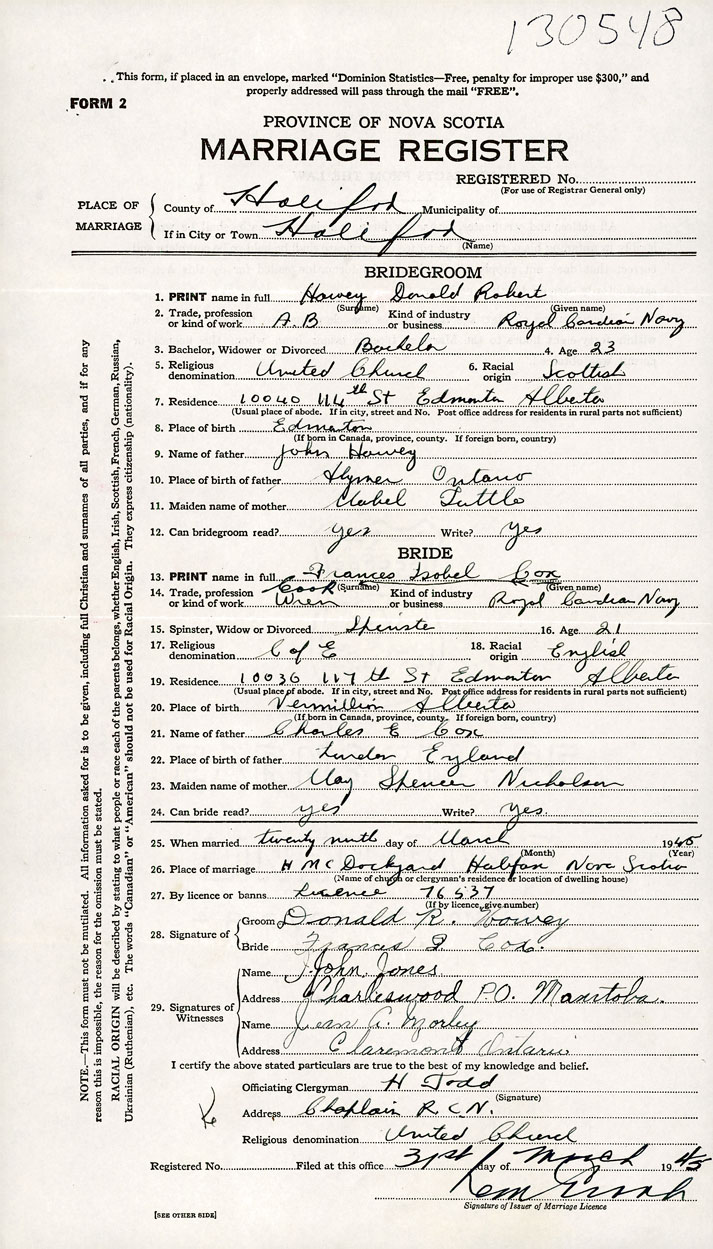 130548
This form, if placed in an envelope, marked "Dominion Statistics—Free, penalty for improper use $300," and
properly addressed will pass through the mail "FREE".
FORM 2
PROVINCE OF NOVA SCOTIA
MARRIAGE REGISTER
REGISTERED No.
(For use of Registrar General only)
PLACE OF MARRIAGE
County of Halifax Municipality of
If in City or Town Halifax
(Name)
BRIDEGROOM
1. PRINT name in full Howey Donald Robert
(Surname) (Given name)
2. Trade, profession or kind of work A.B Kind of industry or business Royal Canadian Navy
3. Bachelor, Widower or Divorced Bachelor 4. Age 23
5. Religious denomination United Church 6. Racial origin Scottish
7. Residence 10040 114th St Edmonton Alberta
(Usual place of abode. If in city, street and No. Post office address for residents in rural parts not sufficient)
8. Place of birth Edmonton
(If born in Canada, province, county. If foreign born, country)
9. Name of father John Howey
10. Place of birth of father Ontario
11. Maiden name of mother Mabel Tuttle
12. Can bridegroom read? yes Write? Yes
BRIDE
13. PRINT name in full Frances Isobel Cox
(Surname) (Given name)
14. Trade, profession or kind of work Cook Wren Kind of industry or business Royal Canadian Navy
15. Spinster, Widow or Divorced Spinster 16. Age 21
17. Religious denomination C of E 18. Racial origin English
19. Residence 10036 117th St Edmonton Alberta
(Usual place of abode. If in city, street and No. Post office address for residents in rural parts not sufficient)
20. Place of birth Vermillion Alberta
(If born in Canada, province, county. If foreign born, country)
21. Name of father Charles E Cox
22. Place of birth of father London England
23. Maiden name of mother May Spencer Nicholson
24. Can bride read? yes Write? Yes.
25. When married twenty ninth day of March 1945
(Month) (Year)
26. Place of marriage H M C Dockyard Halifax Nova Scotia
(Name of church or clergyman's residence or location of dwelling house)
27. By licence or banns Licence 76537
(If by licence, give number)
28. Signature of
Groom Donald R. Howey
Bride Frances I Cox.
29. Signatures of Witnesses
Name John Jones
Address Charleswood P.O. Manitoba.
Name Jean A. Morley
Address Claremont Ontario
I certify the above stated particulars are true to the best of my knowledge and belief.
Officiating Clergyman H Todd
(Signature)
Address Chaplain R.C.N.
Religious denomination United Church
Registered No. Filed at this office 31st day of March 1945
Signature of Issuer of Marriage Licence
[SEE OTHER SIDE]
NOTE.—This form must not be mutilated. All information asked for is to be given, including full Christian and surnames of all parties, and if for any
reason this is impossible, the reason for the omission must be stated.
RACIAL ORIGIN will be described by stating to what people or race each of the parents belongs, whether English, Irish, Scottish, French, German, Russian,
Ukrainian (Ruthenian), etc. The words "Canadian" or "American" should not be used for Racial Origin. They express citizenship (nationality).